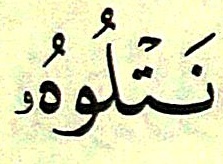 نَتۡلُوهُۥ